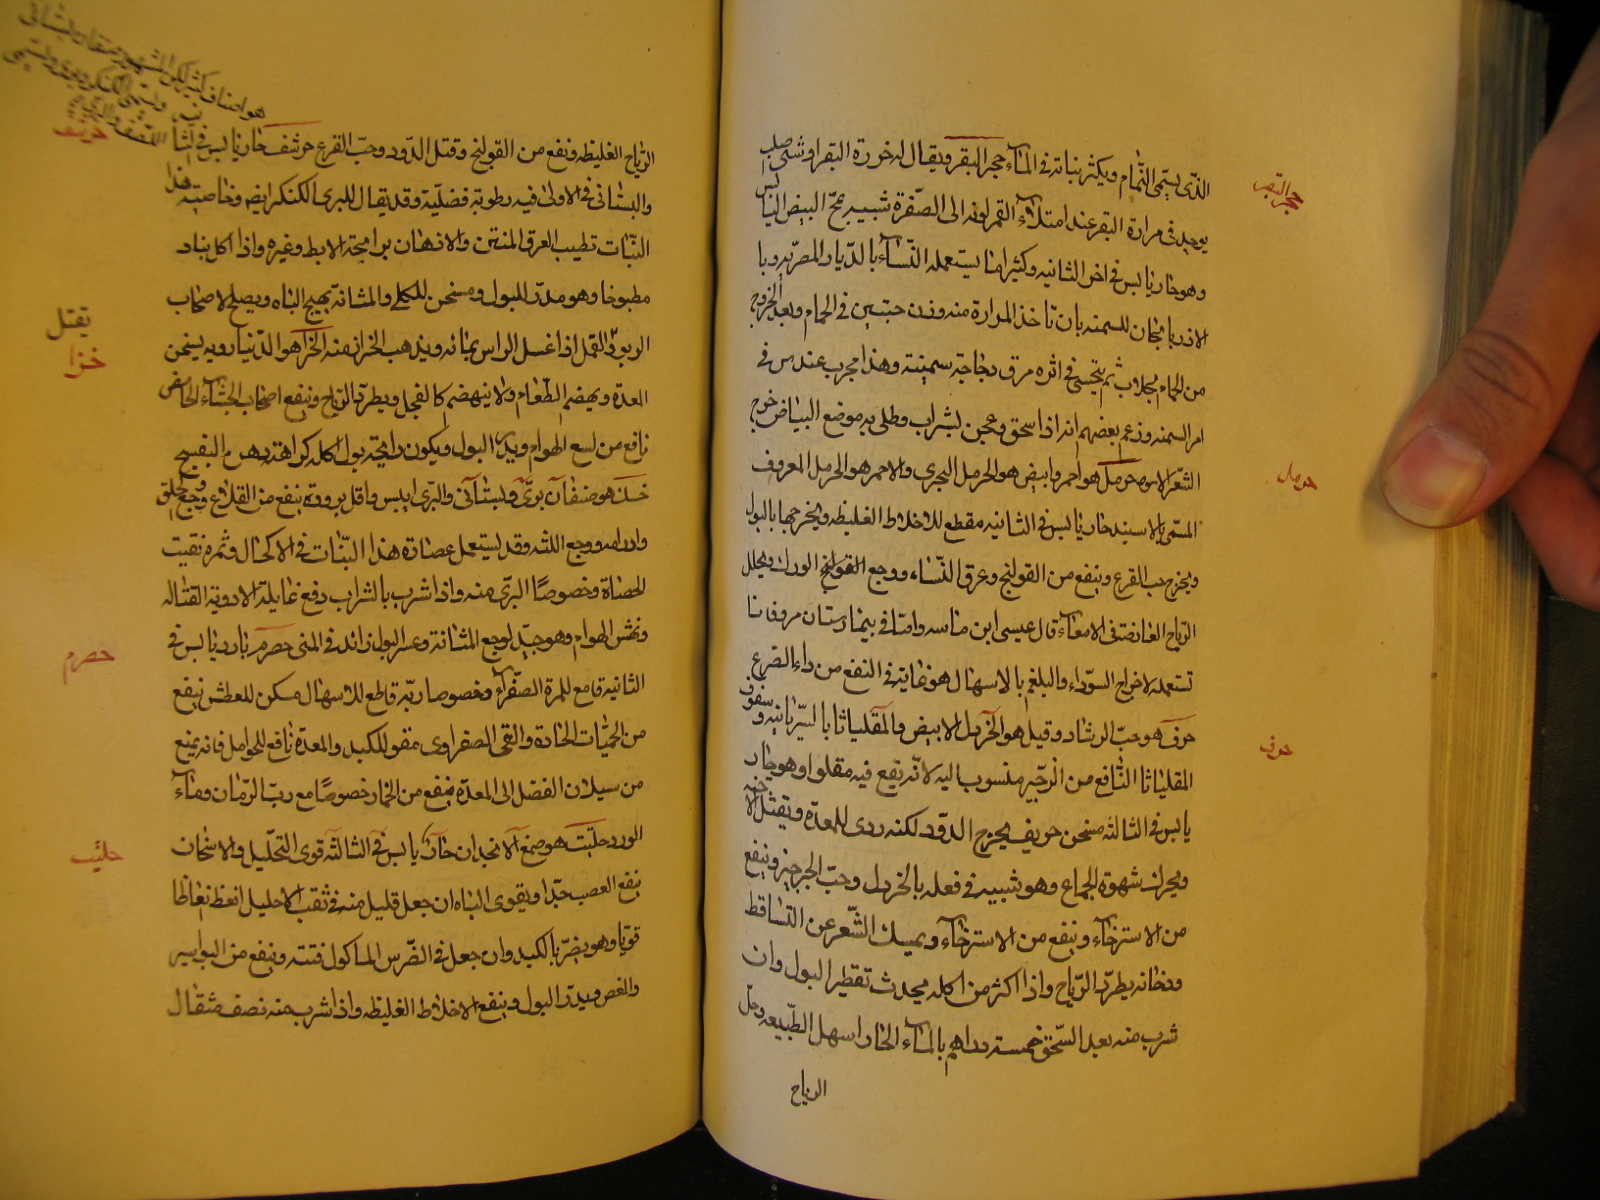 الذى يسمى الثمام ويكثر نباته فى الماء حجر البقر ويقال له خرزة البقر او شئ صلب
حجر البقر
يوجد فى مرارة البقر عند امتلاء القمر لونه الى الصفرة شبيه بمح البيض اليابس
وهو حار يابس فى اخر الثانيه وكثيرا ما يستعمله النساء بالديار المصريه وبا
لاذربايجان للسمنه بان تاخذ المرارة منه وزن حبتين فى الحمام وبعد الخروج
من الحمام بجلاب ثم يتحسى فى اثره مرق دجاجة سمينة وهذا مجرب عندس فى
امر السمنه وزعم بعضهم انه اذا سحق وعجن بشراب وطلى به موضع البياض خرج
الشعر الاسود حرمل هو احمر وابيض هو الحرمل الحجرى والاحمر هو الحرمل المعروف
حرمل
المسمى بالاسيند حار يابس فى الثانيه مقطع للاخلاط الغليظه ويخرجها بالبول
ويخرج حب القرع وينفع من القولنج وعرق النساء ووجع القولنج الورك ويحلل
الرياح العارضة فى الامعاء قال عيسى ابن ماسه وامّا فى بيمارستان مرو فانا
نستعمله لاخراج السوداء والبلغم بالاسهال هو غاية فى النفع من داء الصرع
حرف هو حب الرشاد وقيل هو الخردل الابيض والمقلياثا بالسريانيه وسفوف
حرف
المقلياثا النافع من الزحير منسوب اليه لانه يقع فيه مقلوا وهو حار
يابس فى الثالثه مسخن حريف يخرج الدود لكنه ردى للمعدة ويقتل الاجنه
ويحرك شهوة الجماع وهو شبيه فى فعله بالخردل وحب الجرجير وينفع
من الاسترخاء وينفع من الاسترخاء ويمسك الشعر عن التساقط
ودخانه يطرد الرياح واذا اكثر من اكله يحدث تقطير البول وان
شرب منه بعد السحق خمسة دراهم بالماء الحار اسهل الطبيعه وحل
الرياح
هو اصناف كثيرة لكن المشهور صنفان البستانى
ويسمى الكنكر وبرى ويسمى
حرشف
الرياح الغليظه ونفع من القولنج وقتل الدود وحب القرع حرشف حار يابس فى الثا
والبستانى فى الاولى فيه رطوبة فضلية وقد يقال للبرى الكنكر ايض وخاصية هذا
النبات تطييب العرق المنتن والاذهان برايحة الابط وغيره واذا اكل بناد
مطبوخا وهو مدر للبول ومسخن للكلى والمثانة يهيج الباه ويصلح لاصحاب
يقتل
الربو القمل اذا غسل الراس بمائه ويذهب الحزاز منه الخزا هو الدينارويه يسخن
خزا
المعدة ويهضم الطعام ولا ينهضم كالفجل ويطرد الرياح وينفع اصحاب الجشاء الحامض
نافع من لسع الهوام ويدر البول ويكون رايحة بول اكله كراهة دهن البنفسج
خسك هو صنفان برى وبستانى والبرى ايبس واقل برودة ينفع من القلاع ووجع الحلق
واورامه ووجع اللثه وقد يستعمل عصارة هذا النبات فى الاكحال وثمره تفتت
الحصاة وخصوصًا البرى منه واذا شرب بالشراب دفع غايلة الادوية القتاله
ونهش الهوام وهو جيد لوجع المثانة وعسر البول زائد فى المنى حصرم بارد يابس فى
حصرم
الثانيه قامع للمرة الصفراء وخصوصا ربه قاطع للاسهال مسكن للعطش ينفع
من الحميات الحادة والقى الصفراوى مقو للكبد والمعدة نافع للحوامل فانه يمنع
من سيلان الفضل الى المعدة ينفع من الخمار خصوصًا مع رب الرمان وماء
الورد حلتيت هو صمغ الانجدان حار يابس فى الثالثه قوى التحليل والاسخان
حلتيت
ينفع العصب جدا ويقوى الباه ان جعل قليل منه فى ثقب الاحليل انعظ انعاظا
قويا وهو يضر بالكبد وان جعل فى الضرس الماكول فتته وينفع من البواسير
والمغص ويدر البول وينفع الاخلاط الغليظه واذا شرب منه نصف مثقال